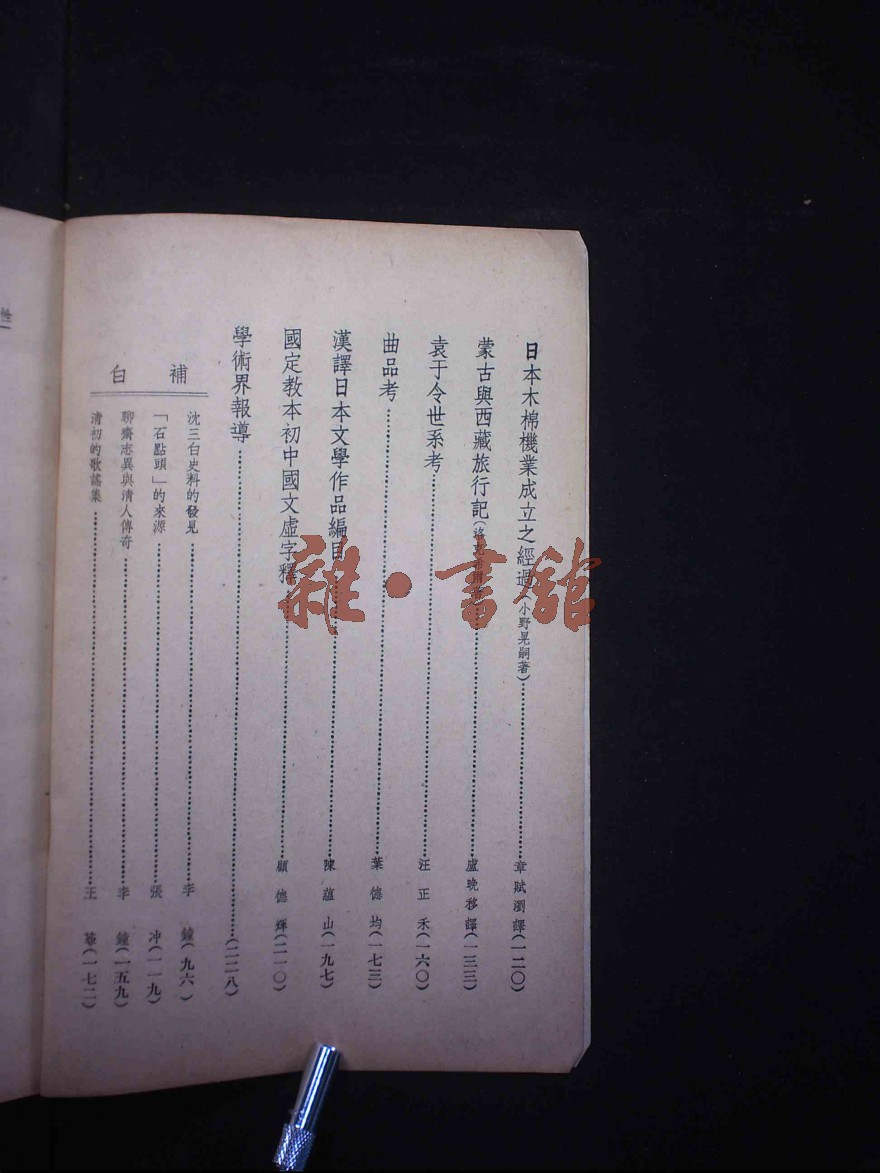 日本木棉機業成立之經過(小野晃嗣著)………章賦瀏譯(一二〇)
蒙古與西藏旅行記………盧晩移譯(一三三)
袁于令世系考………汪正禾(一六〇)
曲品考………葉德均(一七三)
漢譯日本文學作品編目………陳蘊山(一九七)
國定教本初中國文虛字釋………顧德輝(二一〇)
學術界報導………(二二八)
補白
沈三白史料的發見………李鐘(九六)
「石點頭」的來源………張冲(一一九)
聊齋志異與清人傳奇………李鐘(一五九)
清初的歌謠集………王(一七二)
雜·書館